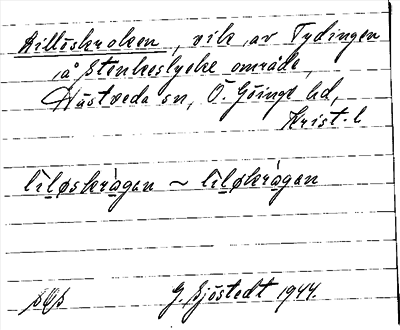 Lillöskroken, vik av Tydingen
å Stenkeslycke område,
Hästveda sn, Ö. Göinge hd,
Krist. l.
lìløskràgan ~ lìløkràgan
G. Sjöstedt 1944.